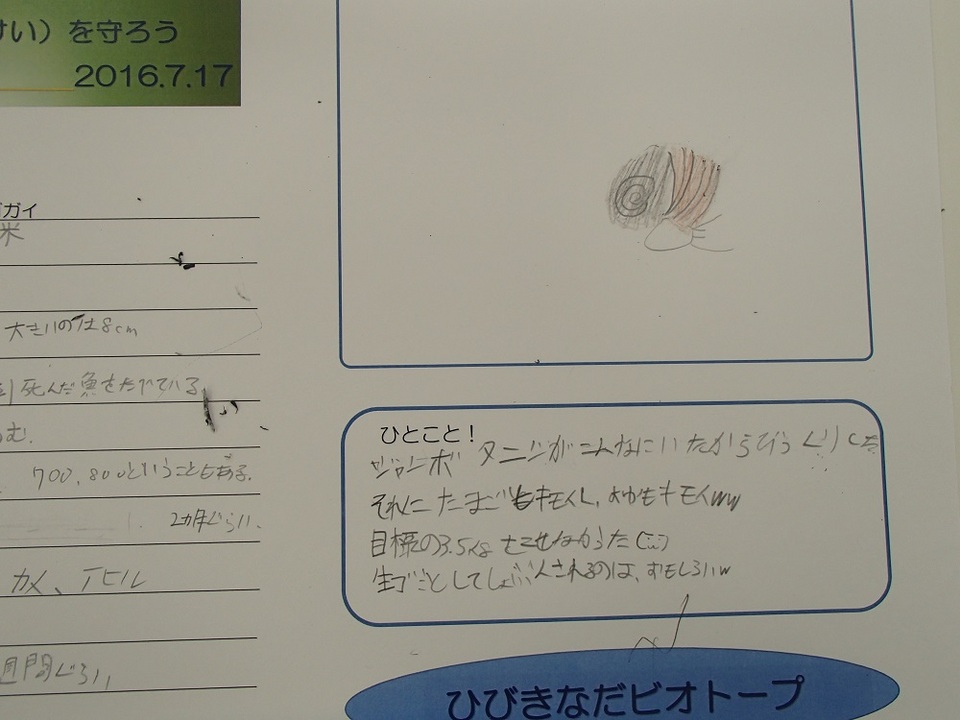 けい）を守ろう
2016.7.17
ガイ
米
大きいのは8cm
死んだ魚をたべている
む.
700,800ということもある.
2カ月ぐらい.
カメ、アヒル
週間ぐらい
ひとこと！
ジャンボタニシがこんなにいたからびっくりした
それにたまごもキモイし、おやもキモイww
目標の3.5kgたせなかった(;;)
生ごみとしてしょぶんされるのは、おもしろいw
ひびきなだビオトープ